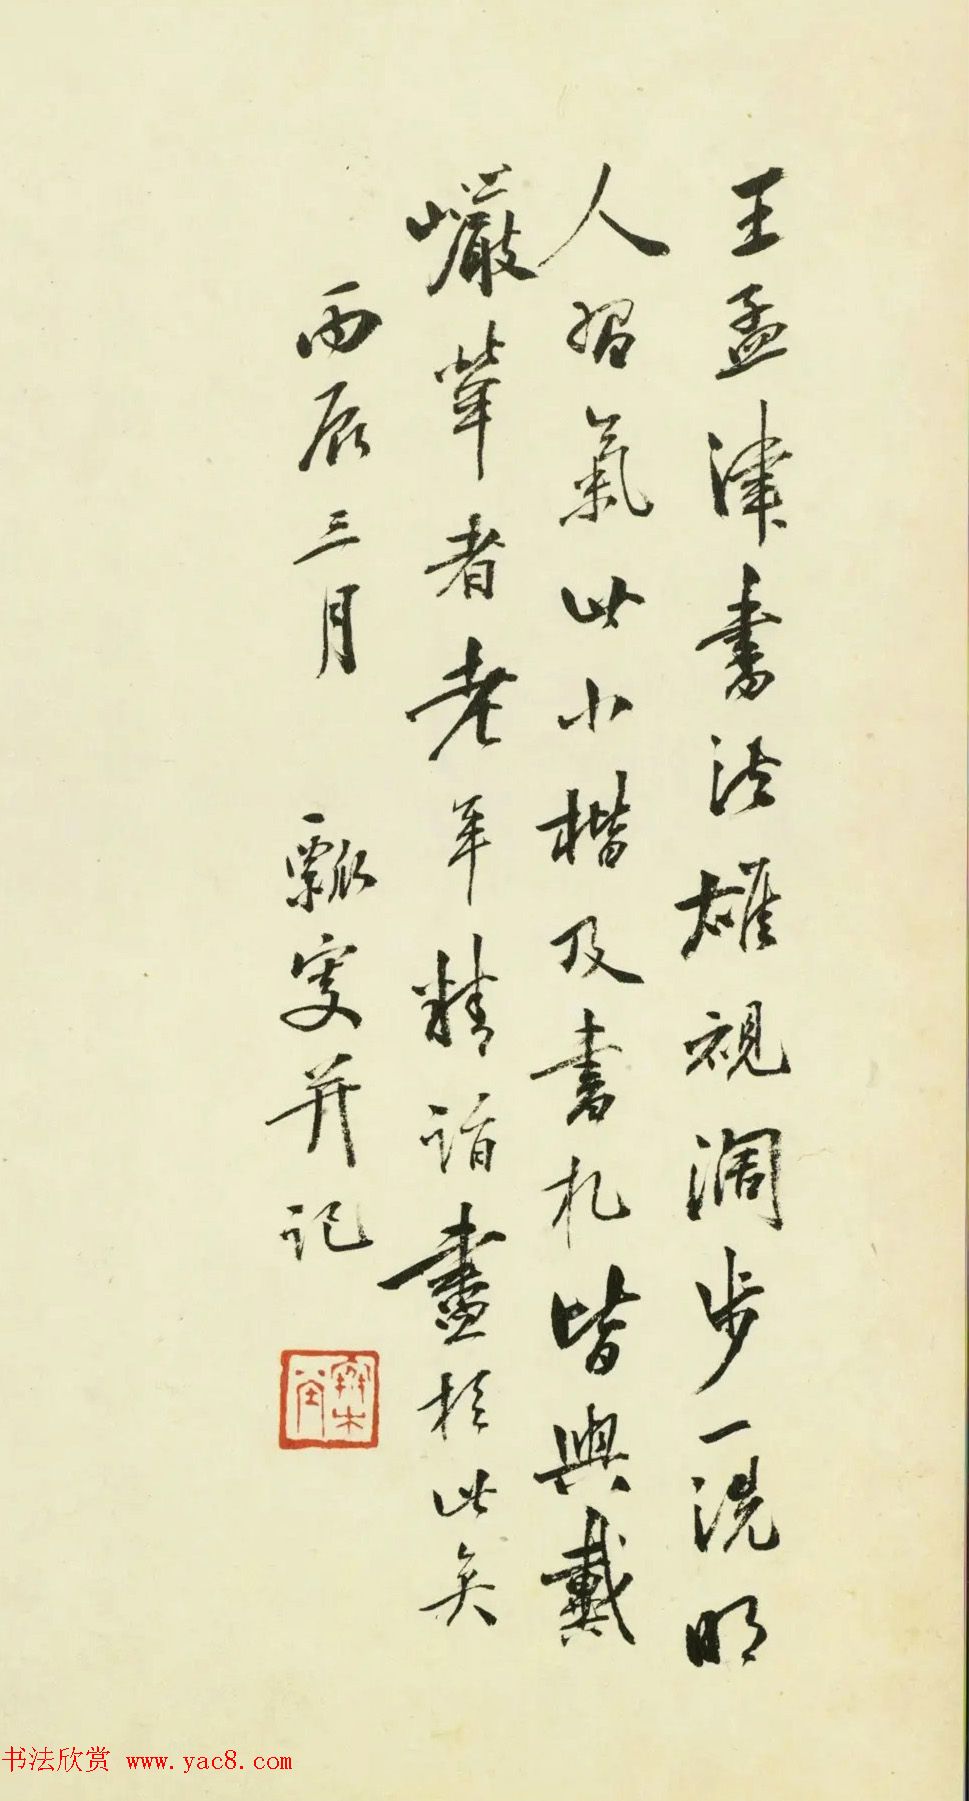 王孟津書法雄視濶步一洗明
人習氣此小楷及書札皆與戴
巖犖者老年精詣盡於此矣
丙辰三月
瓢叟并記
书法欣赏 www.yac8.com